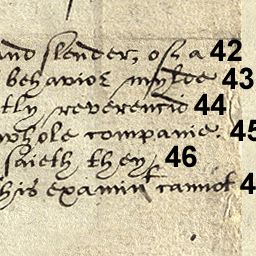 and slender, of a 42
behavior mylde 43
tly reverencid 44
whole companie. 45
saieth they 46
his examint cannot 4